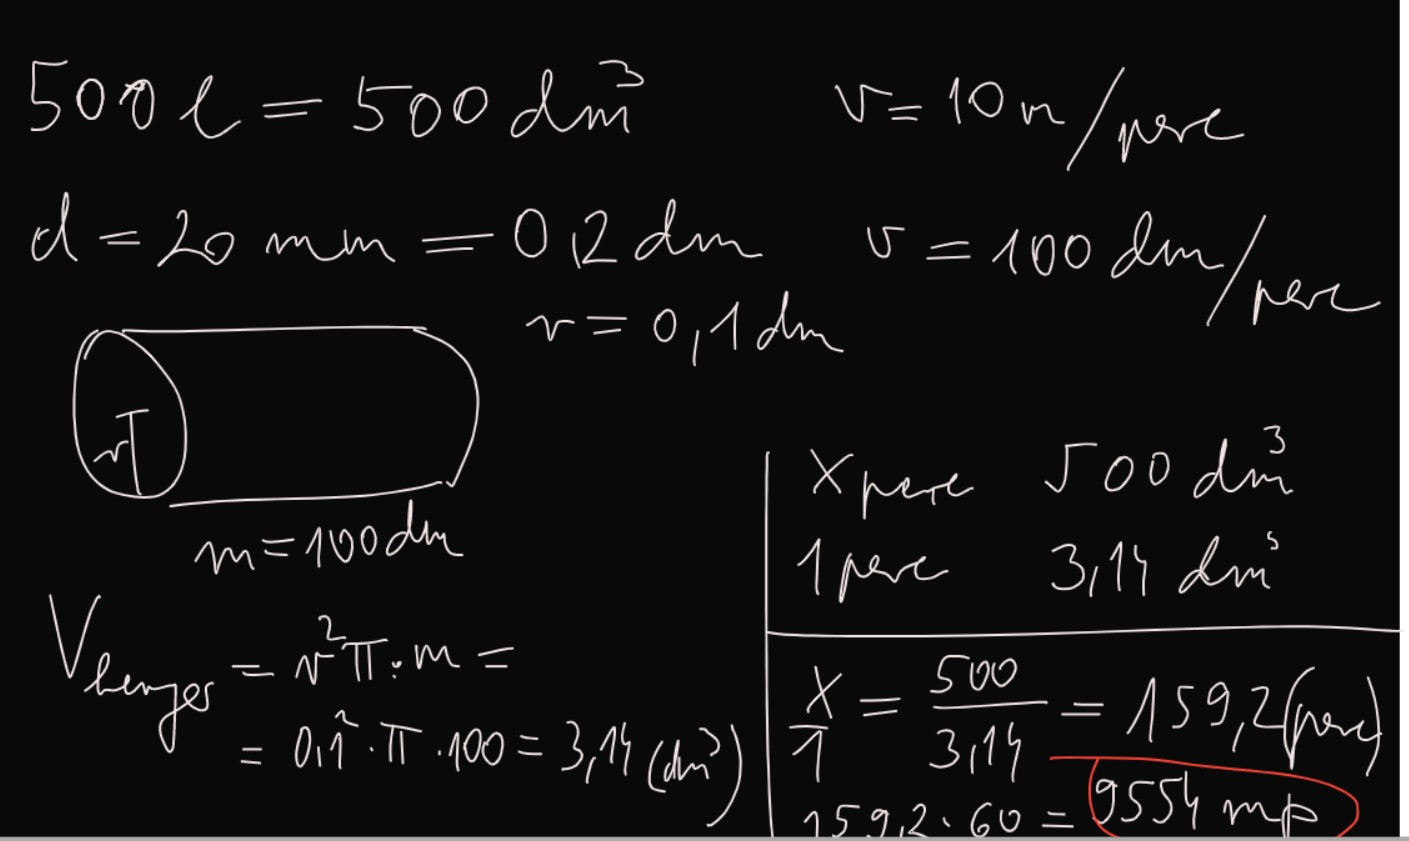 500 l = 500 dm³
d = 20 mm = 0,2 dm
r = 0,1 dm
v = 10 m/perc
v = 100 dm/perc
r
m = 100 dm
V henger = r²π·m =
= 0,1²·π·100 = 3,14 (dm³)
x perc 500 dm³
1 perc 3,14 dm³
x/1 = 500/3,14 = 159,2 (perc)
159,2·60 = 9554 mp